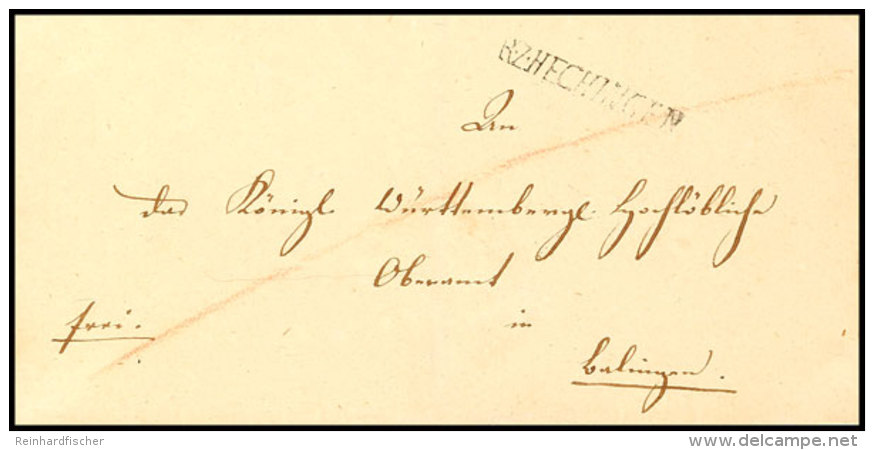 R.2.HECHINGEN
An
das Königl. Württembergl. Hochlöbliche
Oberamt
frei.
in
Balingen.
Reinhardfischer
www.delcampe.net